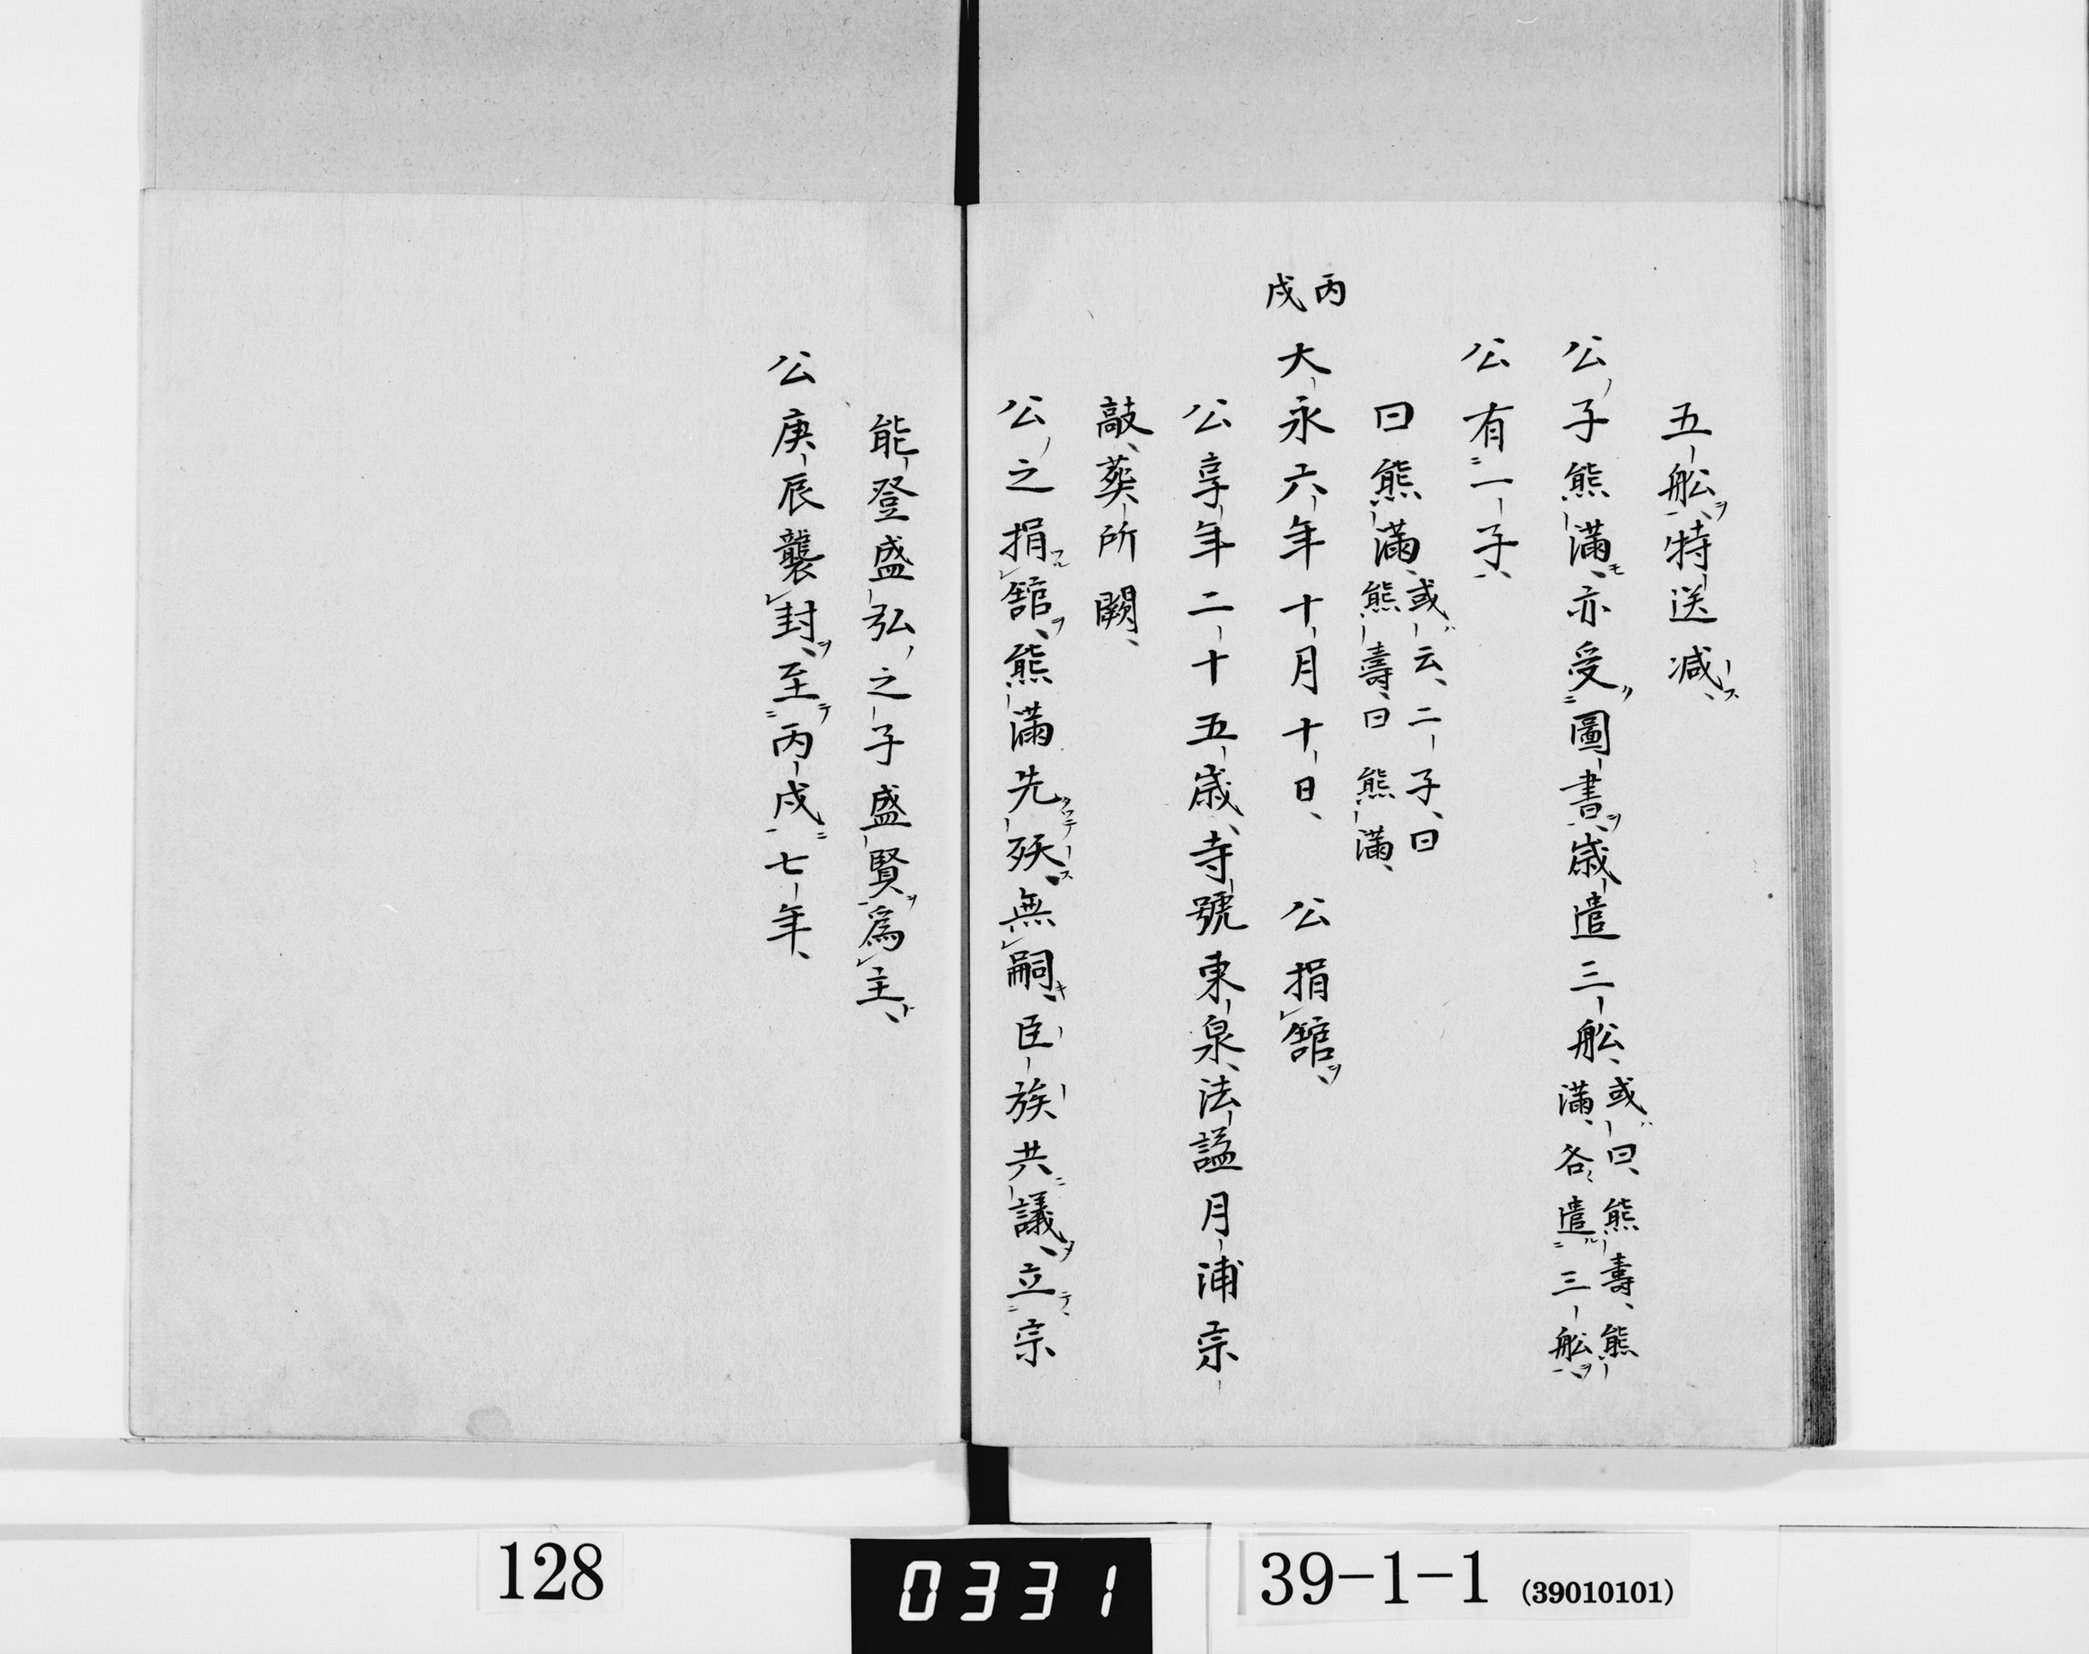 五船特送減
公子熊滿亦受圖書歳遣三船或曰熊壽熊滿各遣三船
公有二子
曰熊滿或云二子曰熊壽曰熊滿
丙戌
大永六年十月十日 公捐舘
公享年二十五歳寺號東泉法謚月浦宗
敲葬所闕
公之捐舘熊滿先殀無嗣臣族共議立宗
能登盛弘之子盛賢爲主
公庚辰襲封至丙戌七年
128
0331
39-1-1 (39010101)